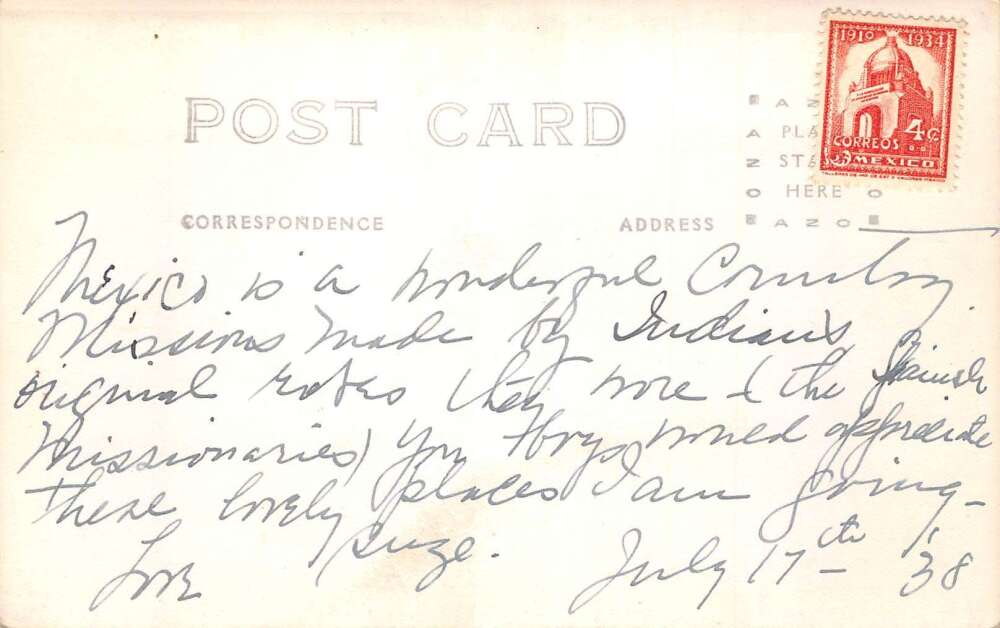 1910 1934
4¢
CORREOS
MEXICO
POST CARD
AZ
A PLA
Z STA
O HERE O
AZO
CORRESPONDENCE ADDRESS
Mexico is a wonderful Country
Missions made by Indians,
original robes they wore & the Spainsh
Missionaries) You Boys would appreciate
these lovely places I am going-
Love Suze. July 17th '38